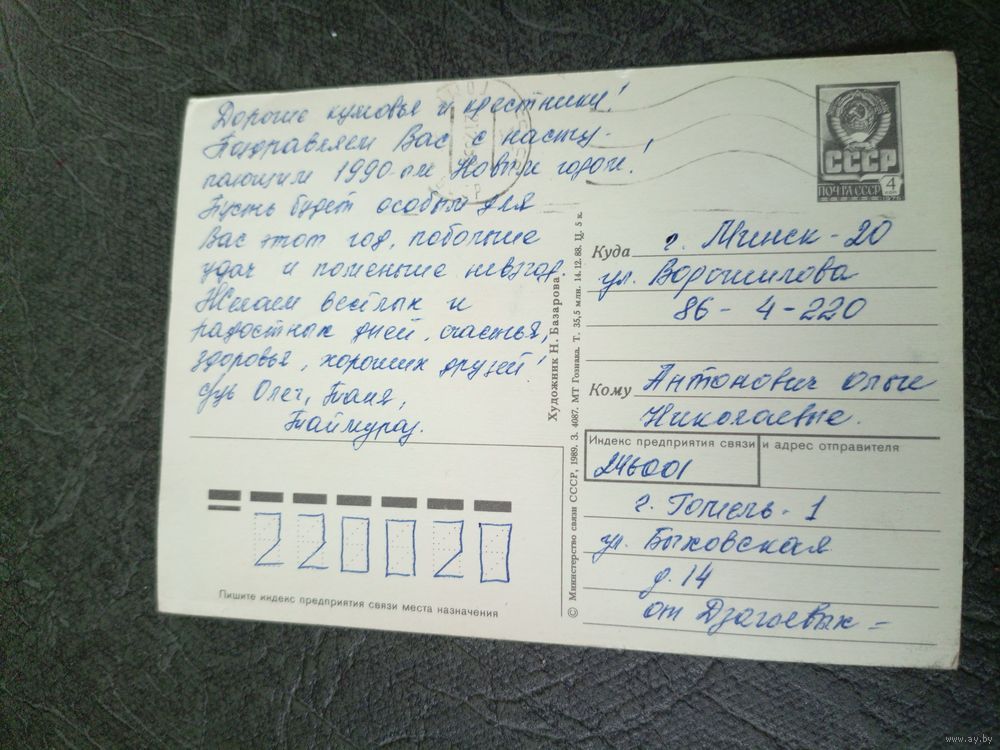 Дорогие кумовья и крестники!
Поздравляем Вас с насту-
пающим 1990-ым Новым годом!
Пусть будет особым для
Вас этот год, побольше
удач и поменьше невзгод.
Желаем весёлых и
радостных дней, счастья,
здоровья, хороших друзей!
Олег, Таня,
Таймураз.
СССР
ПОЧТА СССР
4
Куда г. Минск-20
ул. Ворошилова
86-4-220
Кому Антонович Ольге
Николаевне.
Индекс предприятия связи и адрес отправителя
246001
г. Гомель-1
ул. Быховская
д. 14
от Дзагоевых
220020
Пишите индекс предприятия связи места назначения
Художник Н. Базарова
© Министерство связи СССР, 1989. З. 4087. МТ Гознака. Т. 35,5 млн. 14.12.88. Ц. 5 к.
www.ay.by